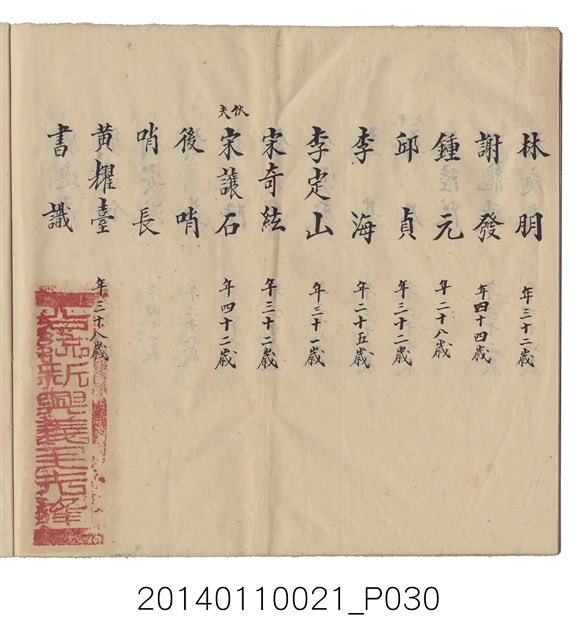 林明 年三十二歲
謝發 年四十四歲
鍾元 年二十八歲
邱貞 年三十二歲
李海 年二十五歲
李定山 年三十一歲
宋奇紘 年三十二歲
伙夫 宋讓石 年四十二歲
後哨
哨長
黃耀臺 年三十八歲
書識
20140110021_P030